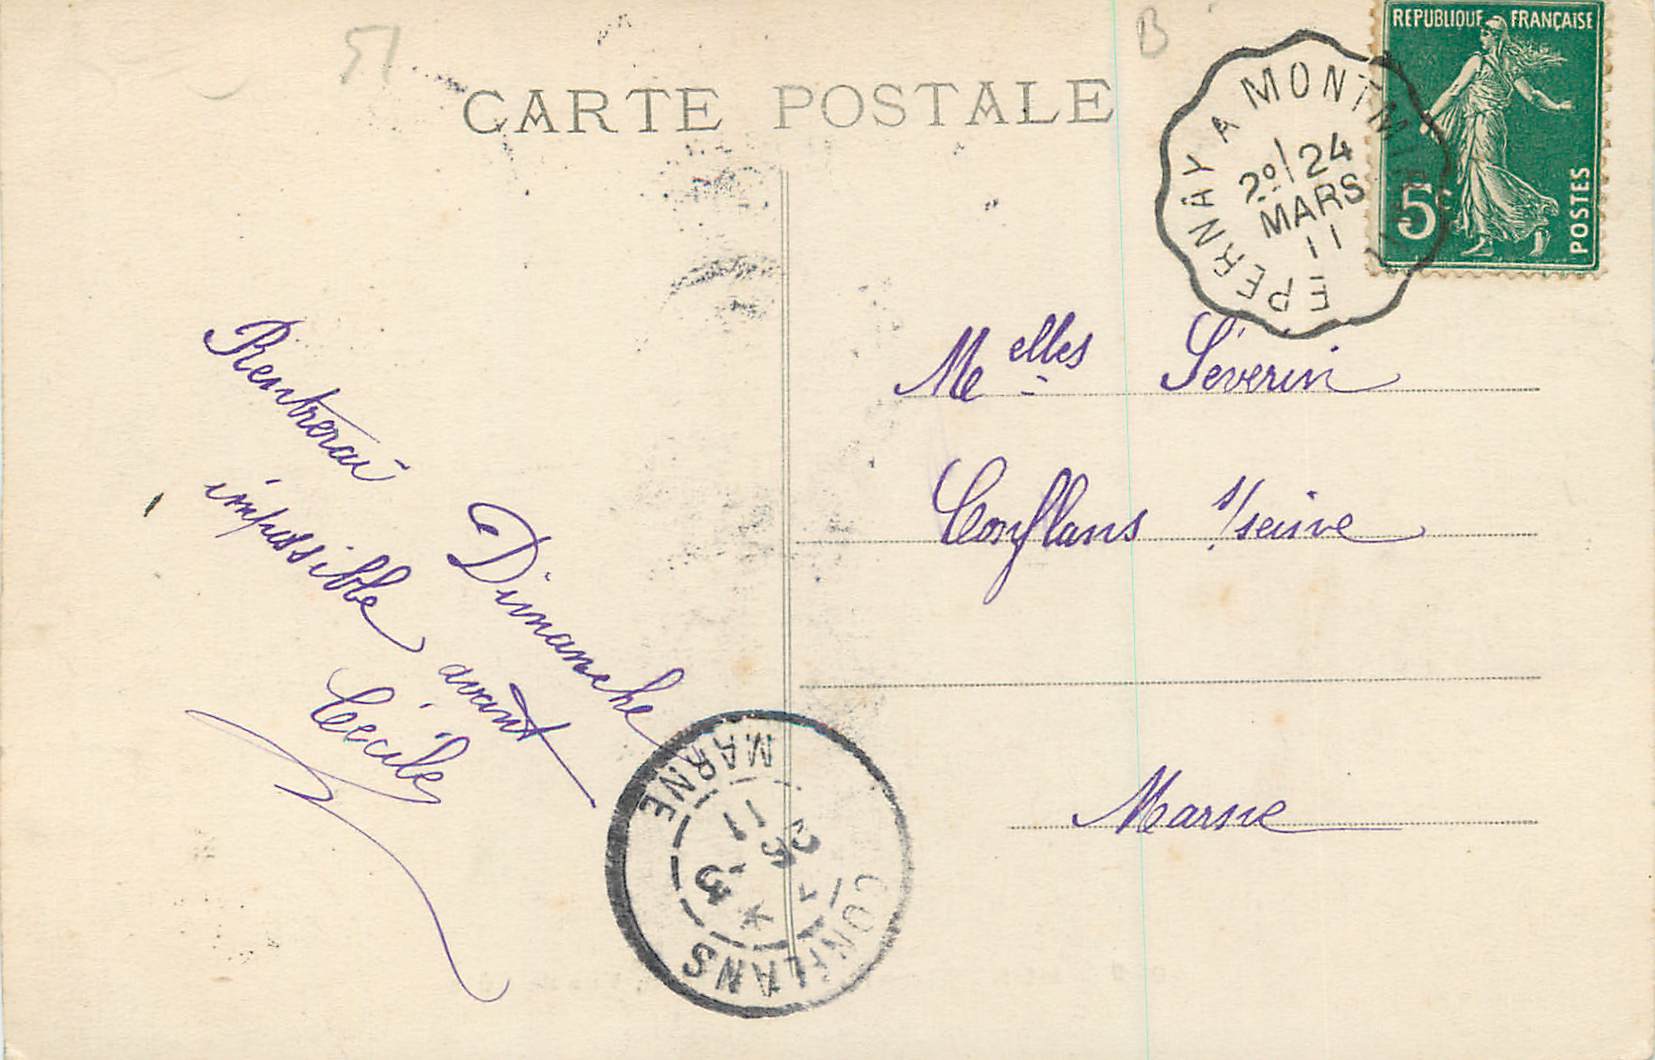 51
B
CARTE POSTALE
REPUBLIQUE FRANÇAISE
5c
POSTES
EPERNAY A MONTMIRAIL
2º/24
MARS
11
Rentrerai Dimanche
impossible avant
Cécile
Melles Séverin
Conflans s/seine
Marne
CONFLANS
MARNE
26 - 3
11